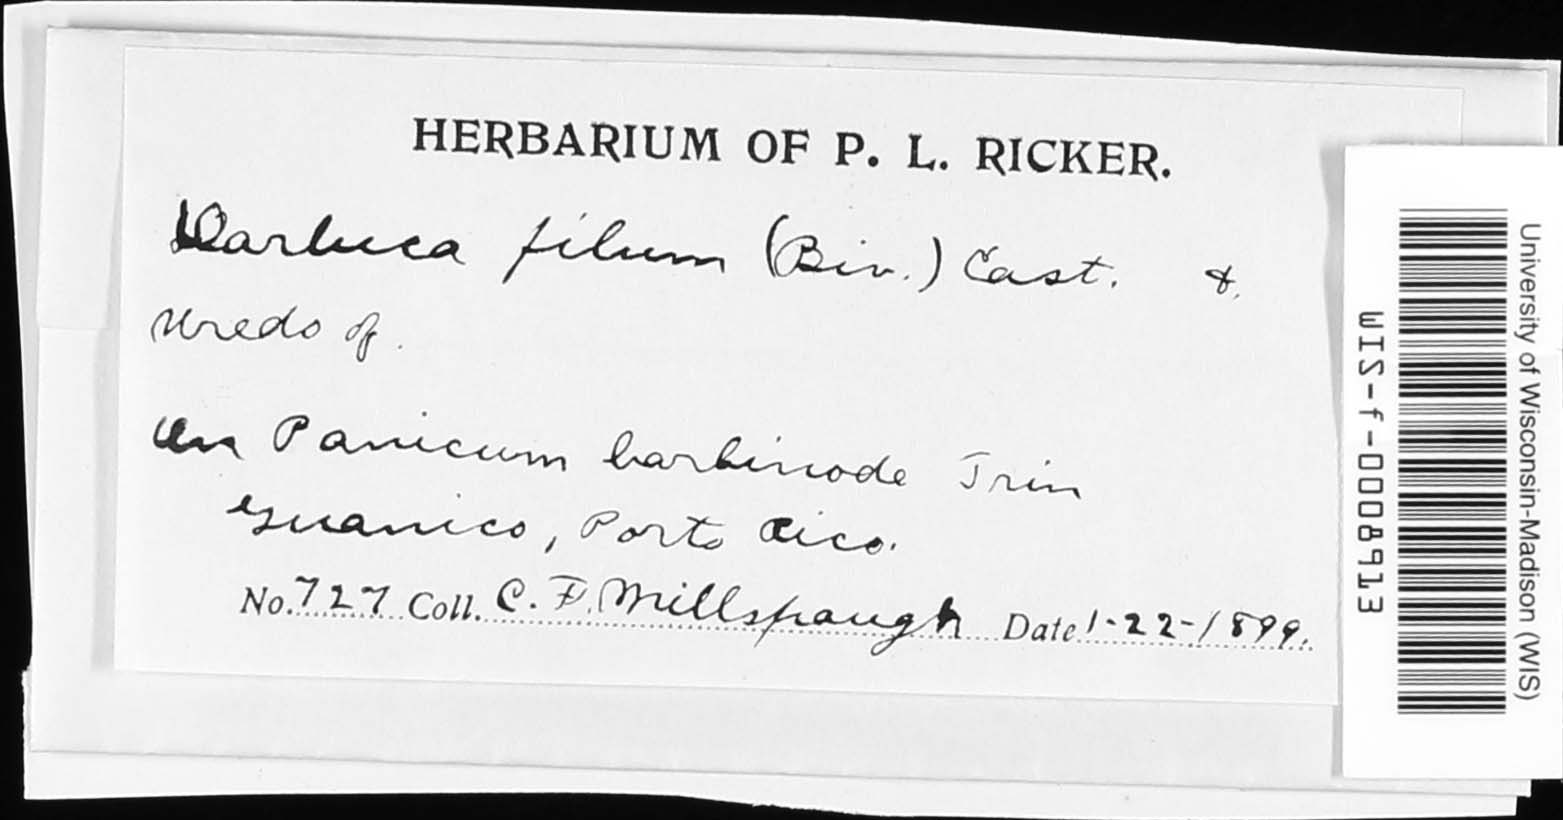 HERBARIUM OF P. L. RICKER.
Darluca filum (Biv.) Cast. &.
Uredo of.
On Panicum barbinode Trin
Guanico, Porto Rico.
No. 727 Coll. C. F. Millspaugh Date 1-22-1899.
WIS-f-0008913
University of Wisconsin-Madison (WIS)